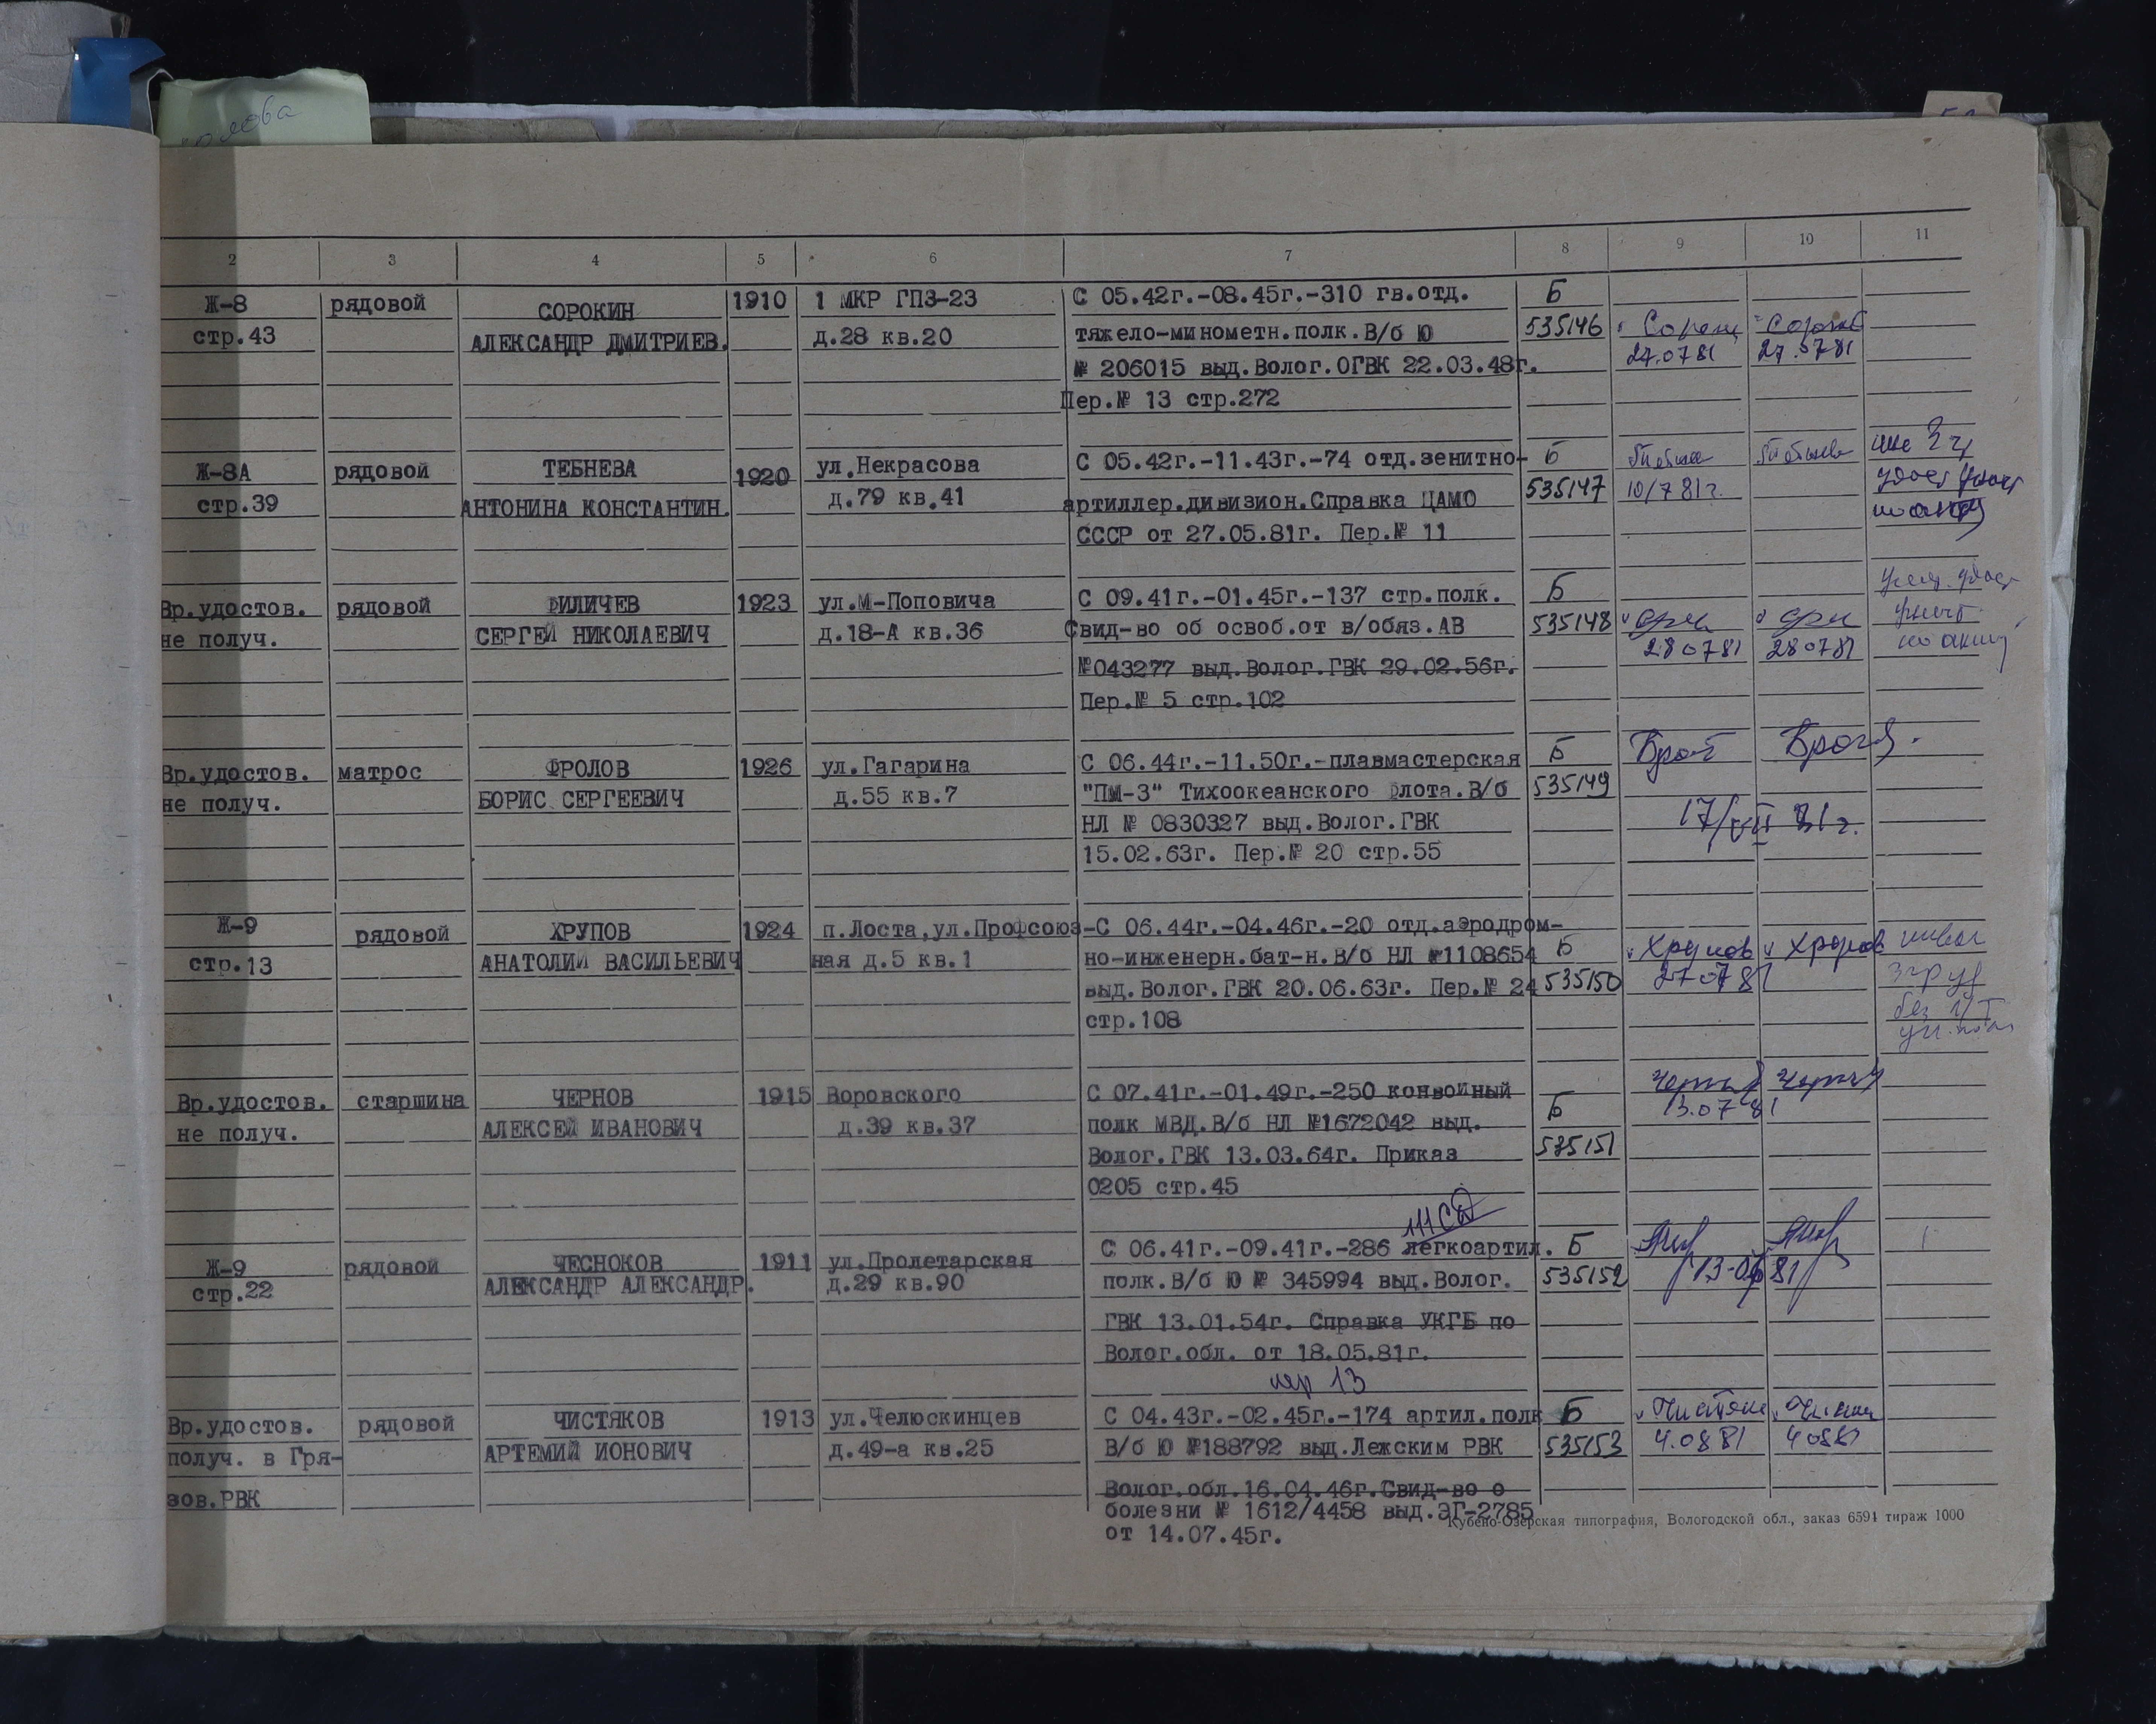 2 3 4 5 6 7 8 9 10 11
Ж-8 рядовой СОРОКИН 1910 1 МКР ГПЗ-23 С 05.42г.-08.45г.-310 гв.отд. Б
стр.43 АЛЕКСАНДР ДМИТРИЕВ. д.28 кв.20 тяжело-минометн.полк.В/б Ю 535146
№ 206015 выд.Волог.ОГВК 22.03.48г. 27.0781 27.0781
Пер.№ 13 стр.272
Ж-8А рядовой ТЕБНЕВА 1920 ул.Некрасова С 05.42г.-11.43г.-74 отд.зенитно- Б
стр.39 АНТОНИНА КОНСТАНТИН. д.79 кв.41 артиллер.дивизион.Справка ЦАМО 535147 10/7 81г.
СССР от 27.05.81г. Пер.№ 11
Вр.удостов. рядовой ФИЛИЧЕВ 1923 ул.М-Поповича С 09.41г.-01.45г.-137 стр.полк. Б
не получ. СЕРГЕЙ НИКОЛАЕВИЧ д.18-А кв.36 Свид-во об освоб.от в/обяз.АВ 535148
№043277 выд.Волог.ГВК 29.02.56г. 280781 280781
по акту
Пер.№ 5 стр.102
Вр.удостов. матрос ФРОЛОВ 1926 ул.Гагарина С 06.44г.-11.50г.-плавмастерская Б
не получ. БОРИС СЕРГЕЕВИЧ д.55 кв.7 "ПМ-3" Тихоокеанского флота.В/б 535149
НЛ № 0830327 выд.Волог.ГВК 17/VII 81г.
15.02.63г. Пер.№ 20 стр.55
Ж-9 рядовой ХРУПОВ 1924 п.Лоста,ул.Профсоюз- С 06.44г.-04.46г.-20 отд.аэродром-
стр.13 АНАТОЛИЙ ВАСИЛЬЕВИЧ ная д.5 кв.1 но-инженерн.бат-н.В/б НЛ №1108654 Б Хрупов Хрупов
выд.Волог.ГВК 20.06.63г. Пер.№ 24 535150 270781
стр.108
Вр.удостов. старшина ЧЕРНОВ 1915 Воровского С 07.41г.-01.49г.-250 конвойный Б
не получ. АЛЕКСЕЙ ИВАНОВИЧ д.39 кв.37 полк МВД.В/б НЛ №1672042 выд. 13.0781
Волог.ГВК 13.03.64г. Приказ 535151
0205 стр.45
111СД
Ж-9 рядовой ЧЕСНОКОВ 1911 ул.Пролетарская С 06.41г.-09.41г.-286 легкоартил. Б
стр.22 АЛЕКСАНДР АЛЕКСАНДР. д.29 кв.90 полк.В/б Ю № 345994 выд.Волог. 535152
ГВК 13.01.54г. Справка УКГБ по
Волог.обл. от 18.05.81г.
пер 13
Вр.удостов. рядовой ЧИСТЯКОВ 1913 ул.Челюскинцев С 04.43г.-02.45г.-174 артил.полк Б
получ. в Гря- АРТЕМИЙ ИОНОВИЧ д.49-а кв.25 В/б Ю №188792 выд.Лежским РВК 535153 4.0881 40881
зов.РВК Волог.обл.16.04.46г.Свид-во о
болезни № 1612/4458 выд.ЭГ-2785
от 14.07.45г.
Кубено-Озерская типография, Вологодской обл., заказ 6594 тираж 1000